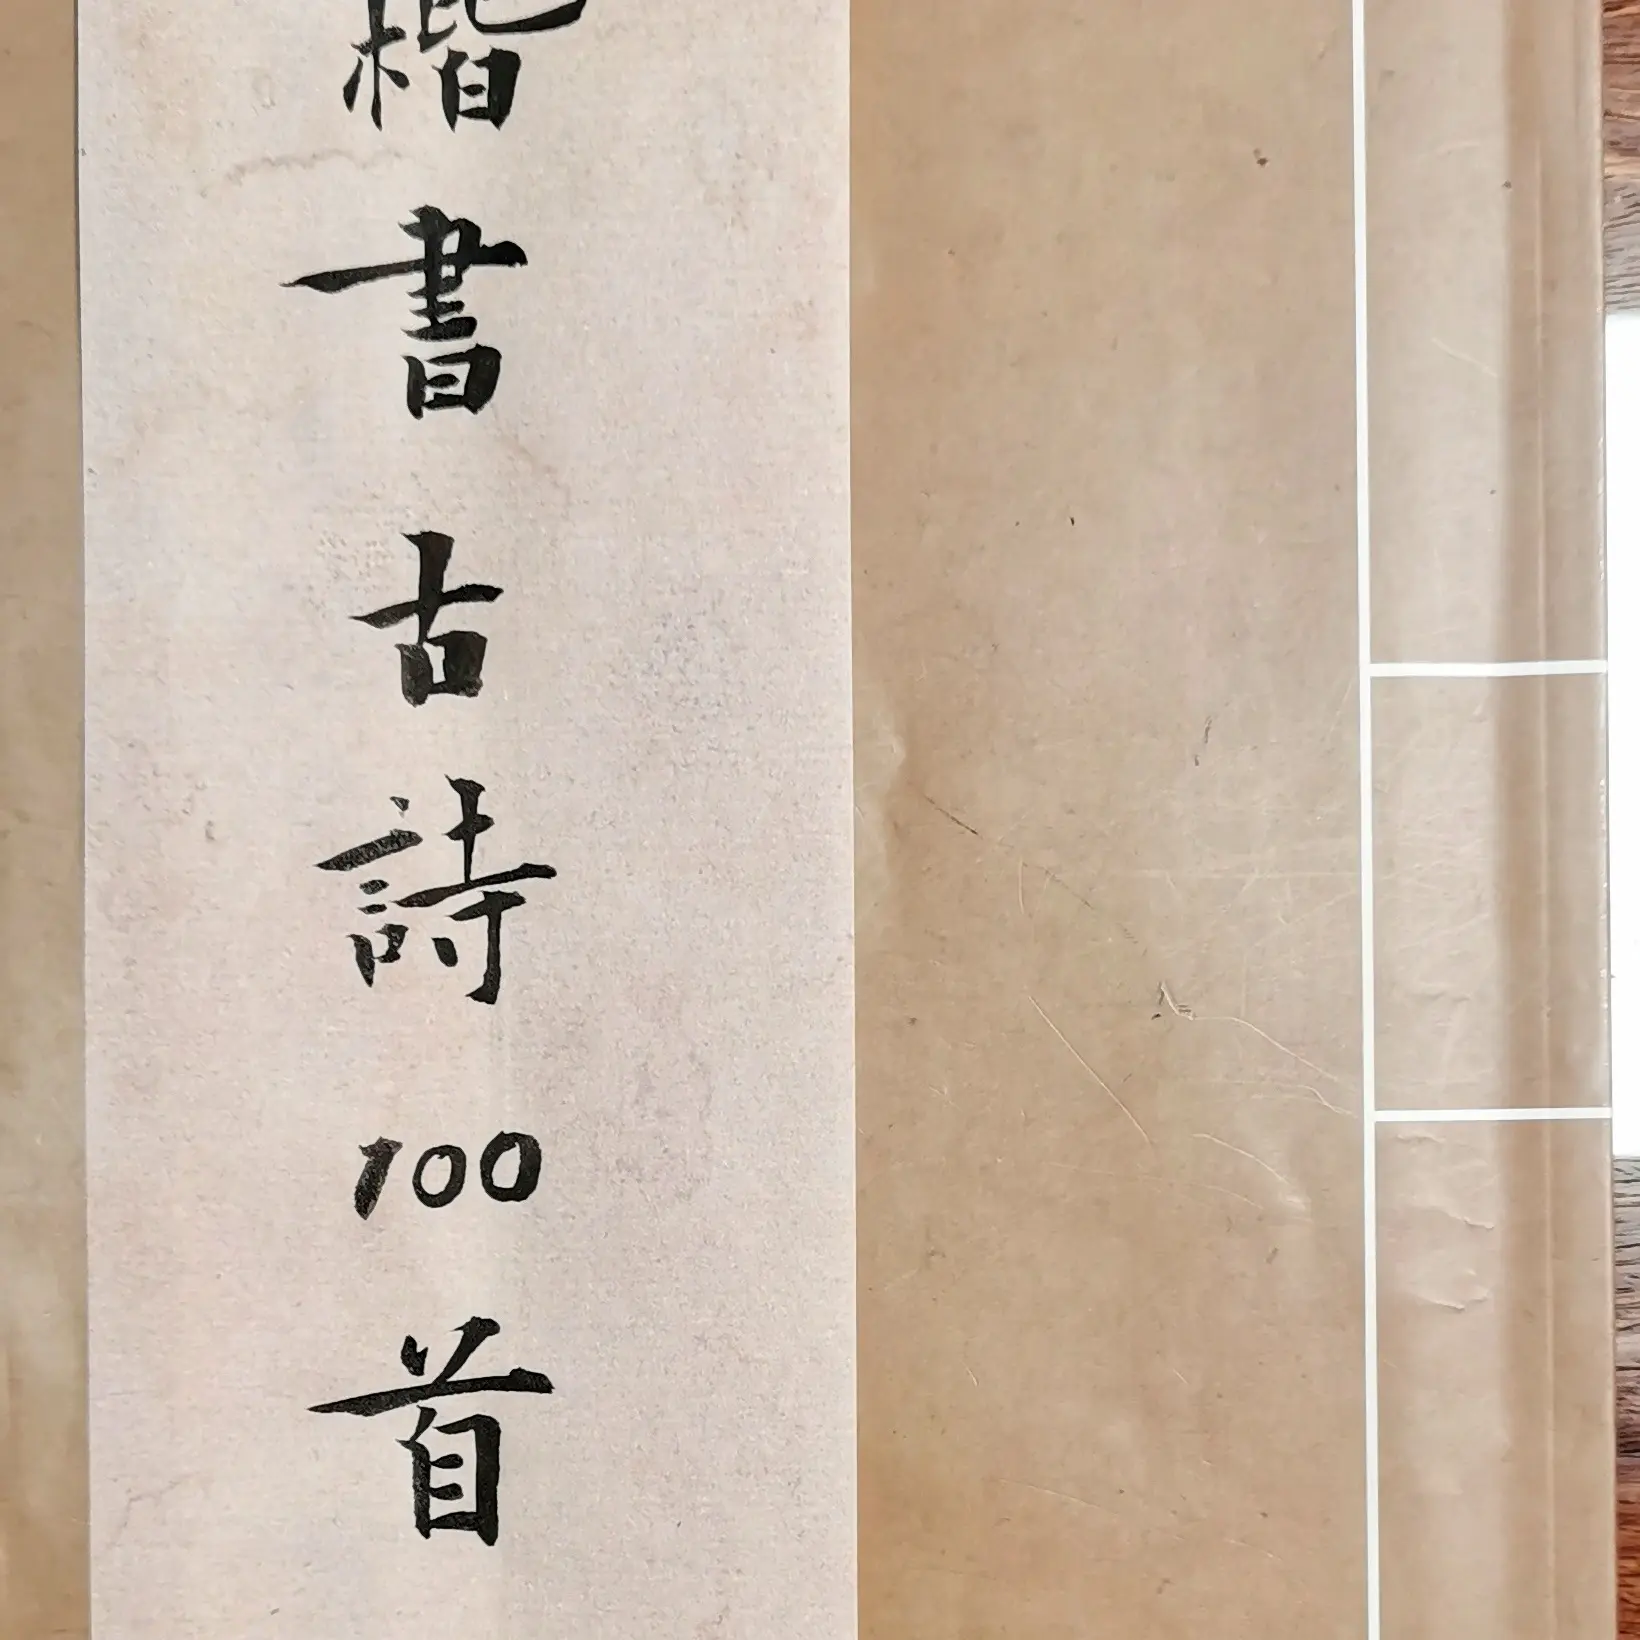 楷書古詩100首